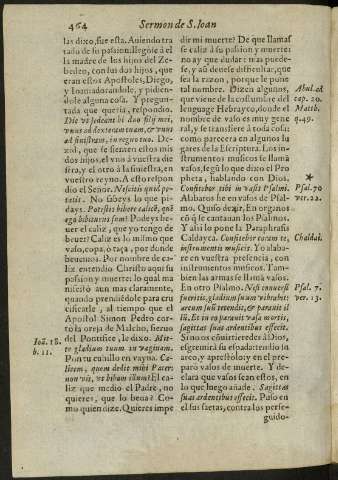 464
Sermon de S. Ioan
las dixo, fue esta. Auiendo tra
tado de su passion: llegose à el
la madre de los hijos del Ze-
bedeo, con sus dos hijos, que
eran estos Apostoles, Diego,
y Ioan: adorandole, y pidien-
dole alguna cosa. Y pregun-
tada que queria, respondio.
Dic vt sedeant hi duo filij mei,
vnus ad dexteram tuam, & vnus
ad sinistram, in regno tuo. De-
zid, que se sienten estos mis
dos hijos, el vno à vuestra die
stra, y el otro à la siniestra, en
vuestro reyno. A esto respon
dio el Señor. Nescitis quid pe-
tatis. No sabeys lo que pi-
days. Potestis bibere calicē, quē
ego bibiturus sum? Podeys be-
uer el caliz, que yo tengo de
beuer? Caliz es lo mismo que
vaso, copa, o taça, por donde
beuemos. Por nombre de ca-
liz entendio Christo aqui su
passion y muerte: lo qual ma
nifestò aun mas claramente,
quando prendiēdole para cru
cificarle, al tiempo que el
Apostol Simon Pedro cor-
tò la oreja de Malcho, sieruo
del Pontifice, le dixo. Mit-
te gladium tuum in vaginam.
Pon tu cuchillo en vayna. Ca-
licem, quem dedit mihi Pater:
non vis, vt bibam illum? El ca-
liz que medio el Padre, no
quieres, que lo beua? Co-
mo quien dize. Quieres impe
Ioā. 18.
b. 11.
dir mi muerte? De que llamas
se caliz à su passion y muerte:
no ay que dudar: mas puede-
se, y aũ deuese disputar, que
sea la razon, porque le pone
tal nombre. Dizen algunos,
que viene de la costumbre del
lenguage Hebrayco, donde el
nombre de vaso es muy gene
ral, y se transfiere à toda cosa:
como parecerà en algunos lu
gares de la Escriptura. Los in-
strumentos musicos se llamā
vasos, segũ lo que dixo el Pro
pheta, hablando con Dios.
Confitebor tibi in vasis Psalmi.
Alabaros he en vasos de Psal-
mo. Quiso dezir, En organos
cō q̄ se cantauan los Psalmos.
Y alli lo pone la Paraphrasis
Caldayca. Confitebor coram te,
instrumentis musicis. Yo alaba-
re en vuestra presencia, con
instrumentos musicos. Tam-
bien las armas se llamā vasos.
En otro Psalmo. Nisi conuersi
fueritis, gladium suum vibrabit:
arcum suū tetendit, & parauit il
lũ. Et in eo parauit vasa mortis,
sagittas suas ardentibus effecit.
Sino os cōuirtieredes à Dios,
esgremirà su espada: tendio su
arco, y aprestolo: y en el prepa
parò vasos de muerte. Y de-
clara que vasos sean estos, en
lo que luego añade. Sagittas
suas ardentibus effecit. Puso en
el sus saetas, contra los perse-
guido-
Abul. ad
cap. 20.
Matth.
q. 49.
*
Psal. 70
ver. 22.
Chaldai.
Psal. 7.
ver. 13.